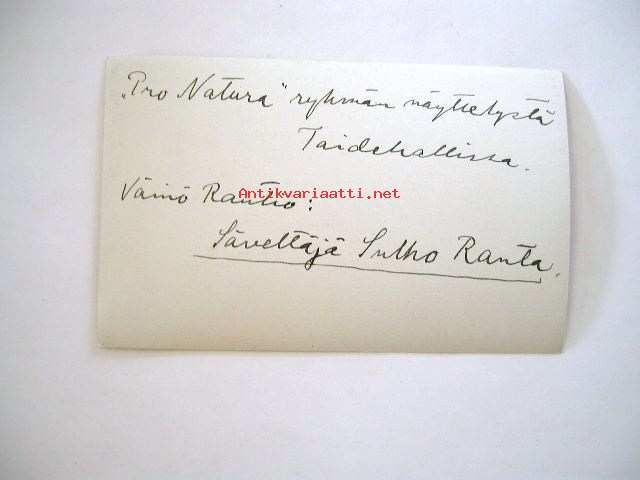 „Pro Natura" ryhmän näyttelystä
Taidehallissa.
Antikvariaatti.net
Väinö Rautio:
Säveltäjä Sulho Ranta.